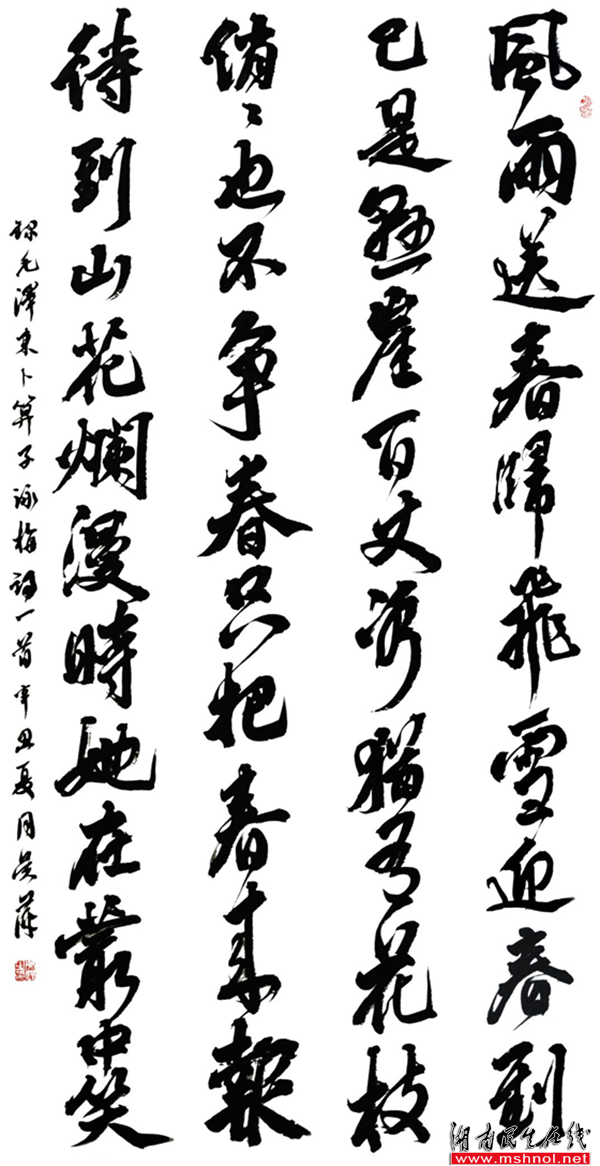 風雨送春歸飛雪迎春到
已是懸崖百丈冰猶有花枝
俏〻也不争春只把春来報
待到山花爛漫時她在叢中笑
録毛澤東卜算子詠梅詞一首辛丑夏月吴
湖南民生在线
www.mshnol.net